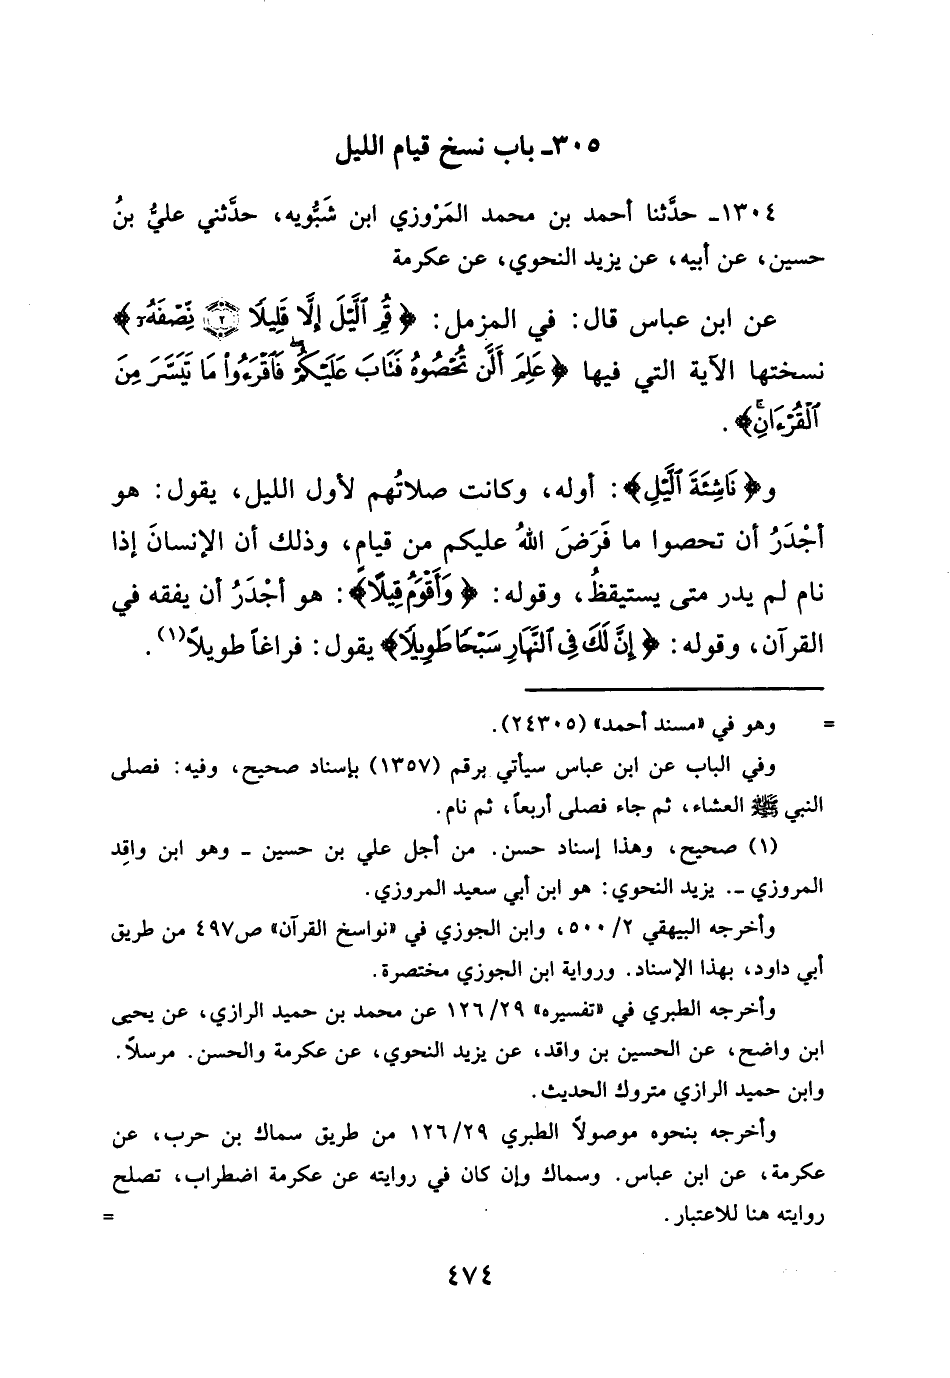 ٣٠٥ـ باب نسخ قيام الليل
١٣٠٤ـ حدَّثنا أحمد بن محمد المَرْوزي ابن شَبُّويه، حدَّثني عليُّ بنُ
حسين، عن أبيه، عن يزيد النحوي، عن عكرمة
عن ابن عباس قال: في المزمل: ﴿قُمِ ٱلَّيْلَ إِلَّا قَلِيلًا ۝٢ نِّصْفَهُۥٓ﴾
نسختها الآية التي فيها ﴿عَلِمَ أَلَّن تُحْصُوهُ فَتَابَ عَلَيْكُمْ ۖ فَٱقْرَءُوا۟ مَا تَيَسَّرَ مِنَ
ٱلْقُرْءَانِ ۚ﴾.
و﴿نَاشِئَةَ ٱلَّيْلِ﴾: أوله، وكانت صلاتُهم لأول الليل، يقول: هو
أجْدَرُ أن تحصوا ما فَرَضَ اللهُ عليكم من قيامٍ، وذلك أن الإنسانَ إذا
نام لم يدر متى يستيقظُ، وقوله: ﴿وَأَقْوَمُ قِيلًا﴾: هو أجْدَرُ أن يفقه في
القرآن، وقوله: ﴿إِنَّ لَكَ فِى ٱلنَّهَارِ سَبْحًا طَوِيلًا﴾ يقول: فراغاً طويلاً(١).
= وهو في «مسند أحمد» (٢٤٣٠٥).
وفي الباب عن ابن عباس سيأتي برقم (١٣٥٧) بإسناد صحيح، وفيه: فصلى
النبي ﷺ العشاء، ثم جاء فصلى أربعاً، ثم نام.
(١) صحيح، وهذا إسناد حسن. من أجل علي بن حسين ـ وهو ابن واقِد
المروزي ـ. يزيد النحوي: هو ابن أبي سعيد المروزي.
وأخرجه البيهقي ٢/ ٥٠٠، وابن الجوزي في «نواسخ القرآن» ص٤٩٧ من طريق
أبي داود، بهذا الإسناد. ورواية ابن الجوزي مختصرة.
وأخرجه الطبري في «تفسيره» ٢٩/ ١٢٦ عن محمد بن حميد الرازي، عن يحيى
ابن واضح، عن الحسين بن واقد، عن يزيد النحوي، عن عكرمة والحسن. مرسلاً.
وابن حميد الرازي متروك الحديث.
وأخرجه بنحوه موصولاً الطبري ٢٩/ ١٢٦ من طريق سماك بن حرب، عن
عكرمة، عن ابن عباس. وسماك وإن كان في روايته عن عكرمة اضطراب، تصلح
روايته هنا للاعتبار. =
٤٧٤